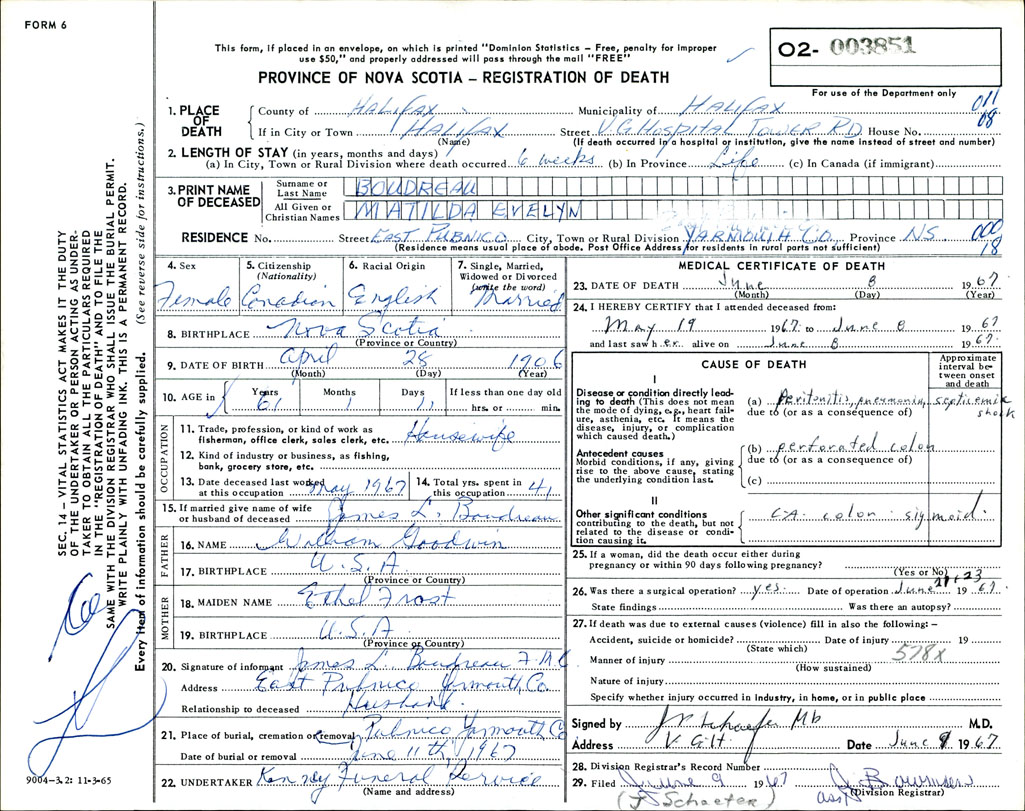 FORM 6
This form, if placed in an envelope, on which is printed "Dominion Statistics – Free, penalty for improper
use $50," and properly addressed will pass through the mail "FREE"
PROVINCE OF NOVA SCOTIA – REGISTRATION OF DEATH
02- 003851
For use of the Department only
011
08
1. PLACE OF DEATH
County of HALIFAX Municipality of HALIFAX
If in City or Town HALIFAX Street V.G. HOSPITAL TOWER RD House No.
(Name) (If death occurred in a hospital or institution, give the name instead of street and number)
2. LENGTH OF STAY (in years, months and days)
(a) In City, Town or Rural Division where death occurred 6 weeks (b) In Province Life (c) In Canada (if immigrant)
3. PRINT NAME OF DECEASED
Surname or Last Name BOUDREAU
All Given or Christian Names MATILDA EVELYN
RESIDENCE No. Street EAST PUBNICO City, Town or Rural Division YARMOUTH CO. Province NS
(Residence means usual place of abode, Post Office Address for residents in rural parts not sufficient)
000
18
4. Sex Female
5. Citizenship (Nationality) Canadian
6. Racial Origin English
7. Single, Married, Widowed or Divorced (write the word) Married
8. BIRTHPLACE Nova Scotia
(Province or Country)
9. DATE OF BIRTH April 28 1906
(Month) (Day) (Year)
10. AGE in Years 61 Months 1 Days 11 If less than one day old hrs. or min.
OCCUPATION
11. Trade, profession, or kind of work as fisherman, office clerk, sales clerk, etc. Housewife
12. Kind of industry or business, as fishing, bank, grocery store, etc.
13. Date deceased last worked at this occupation May 1967 14. Total yrs. spent in this occupation 41
15. If married give name of wife or husband of deceased James L. Boudreau
FATHER
16. NAME William Goodwin
17. BIRTHPLACE U.S.A
(Province or Country)
MOTHER
18. MAIDEN NAME Ethel Frost
19. BIRTHPLACE U.S.A
(Province or Country)
20. Signature of informant James L. Boudreau
Address East Pubnico Yarmouth Co
Relationship to deceased Husband
21. Place of burial, cremation or removal Pubnico Yarmouth Co
Date of burial or removal June 11th, 1967
22. UNDERTAKER Kenney Funeral Service
(Name and address)
MEDICAL CERTIFICATE OF DEATH
23. DATE OF DEATH June 8 1967
(Month) (Day) (Year)
24. I HEREBY CERTIFY that I attended deceased from:
May 19 1967 to June 8 1967
and last saw her alive on June 8 1967
CAUSE OF DEATH
Approximate interval between onset and death
I
Disease or condition directly leading to death (This does not mean the mode of dying, e.g., heart failure, asthenia, etc. It means the disease, injury, or complication which caused death.)
(a) Peritonitis, pneumonia, septicemic shock
due to (or as a consequence of)
Antecedent causes
Morbid conditions, if any, giving rise to the above cause, stating the underlying condition last.
(b) perforated colon
due to (or as a consequence of)
(c)
II
Other significant conditions contributing to the death, but not related to the disease or condition causing it.
CA colon sigmoid.
25. If a woman, did the death occur either during pregnancy or within 90 days following pregnancy?
(Yes or No)
26. Was there a surgical operation? yes. Date of operation June 1967
State findings Was there an autopsy?
27. If death was due to external causes (violence) fill in also the following: –
Accident, suicide or homicide? Date of injury 19
(State which)
578x
Manner of injury
(How sustained)
Nature of injury
Specify whether injury occurred in industry, in home, or in public place
Signed by M.D.
Address Date June 9 1967
28. Division Registrar's Record Number
29. Filed June 9 1967
(Division Registrar)
(J Schaefer)
SEC. 14 – VITAL STATISTICS ACT MAKES IT THE DUTY
OF THE UNDERTAKER OR PERSON ACTING AS UNDER-
TAKER TO OBTAIN ALL THE PARTICULARS REQUIRED
IN THE "REGISTRATION OF DEATH" AND TO FILE THE
SAME WITH THE DIVISION REGISTRAR WHO SHALL ISSUE THE BURIAL PERMIT.
WRITE PLAINLY WITH UNFADING INK. THIS IS A PERMANENT RECORD.
Every item of information should be carefully supplied. (See reverse side for instructions.)
9004-3.2: 11-3-65